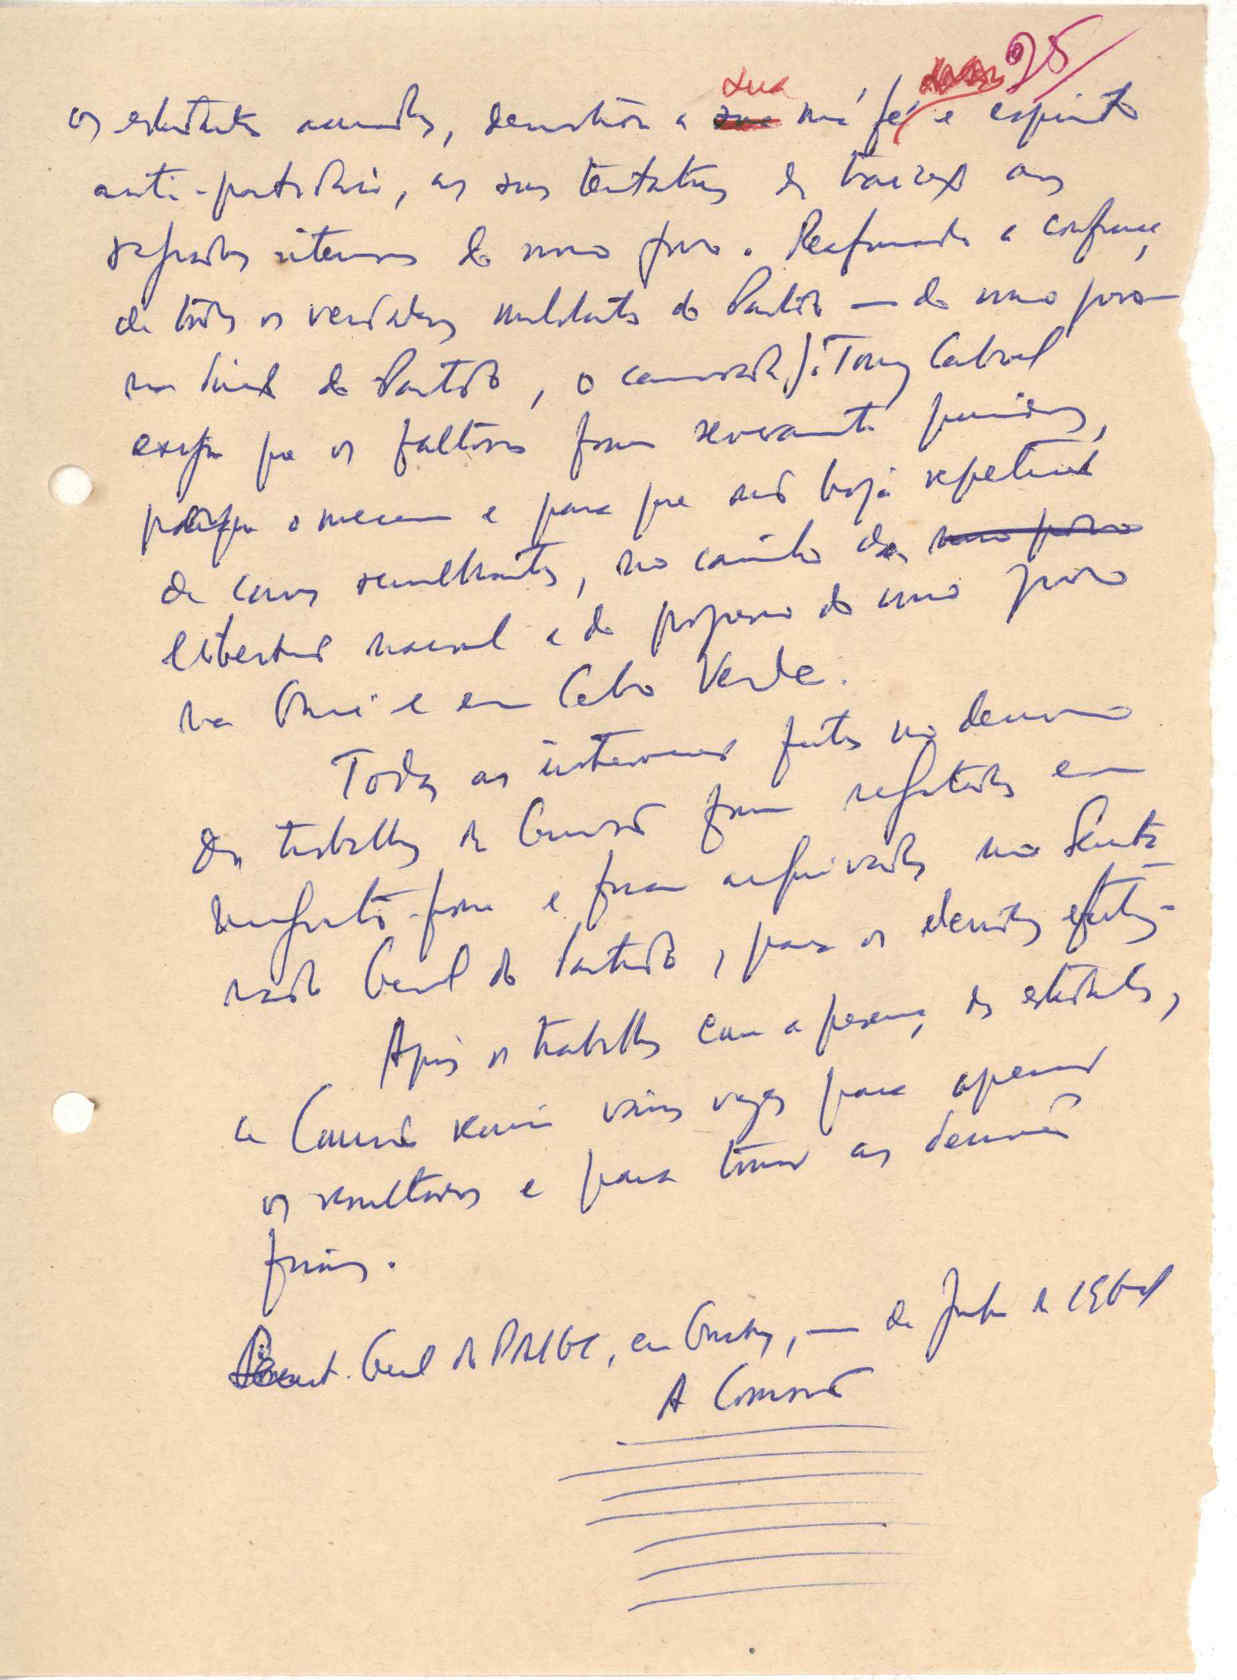 25
sua
os estudantes acusados, demonstram a sua má fé e espírito
anti-partidário, as suas tentativas de traição aos
sagrados interesses do nosso povo. Reafirmando a confiança
de todos os verdadeiros militantes do Partido — do nosso povo —
na direcção do Partido, o camarada J. Tony Cabral
exigiu que os faltosos fossem severamente punidos,
porque o merecem e para que não haja repetição
de casos semelhantes, no caminho da nosso povo
libertação nacional e do progresso do nosso povo
na Guiné e em Cabo Verde.
Todas as intervenções feitas no decurso
dos trabalhos da Comissão foram registadas em
magneto-fone e foram arquivadas no Secreta-
riado Geral do Partido, para os devidos efeitos.
Após os trabalhos com a presença dos estudantes,
a Comissão reuniu várias vezes para apreciar
os resultados e para tomar as decisões
finais.
Secret. Geral do PAIGC, em Conakry, — de Junho de 196
A Comissão